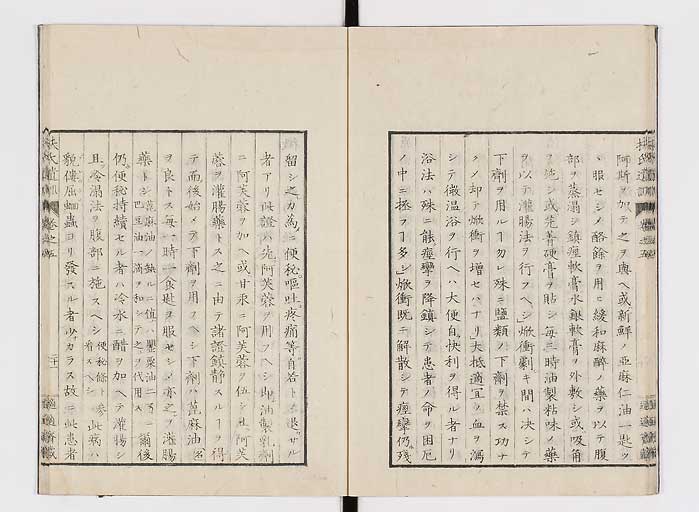 阿斯ヲ加テ之ヲ與ヘ或新鮮ノ亜麻仁油一匙ヅ
ヽ服セシメ酪餘ヲ用ヒ緩和麻醉ノ藥ヲ以テ腹
部ヲ蒸溻シ鎮痙軟膏水銀軟膏ヲ外敷シ或吸角
ヲ施シ或芫菁硬膏ヲ貼シ毎三時油製粘味ノ藥
ヲ以テ灌腸法ヲ行フヘシ焮衝劇キ間ハ决シテ
下劑ヲ用ルヿカレ殊ニ鹽類ノ下劑ヲ禁ス功ナ
クノ却テ焮衝ヲ増セハナリ大抵適宜ノ血ヲ瀉
シテ微温浴ヲ行ヘハ大便自快利ヲ得ル者ナリ
浴法ハ殊ニ能痙攣ヲ降鎮シテ患者ノ命ヲ困厄
ノ中ニ拯フヿ多シ焮衝既ニ解散シテ痙攣仍殘
留シ之カ為ニ便秘嘔吐疼痛等自若トサル
者アリ此證ハ先阿芙蓉ヲ用フヘシ即油製乳劑
ニ阿芙蓉ヲ加ヘ或甘汞ニ阿芙蓉ヲ伍シ且阿芙
蓉ヲ灌腸藥トス之ニ由テ諸證鎮静スルヿヲ得
テ而後始メテ下劑ヲ用フヘシ下劑ハ蓖麻油
ヲ良トス毎一時一食匙ヲ服セシメ亦之ヲ灌腸
藥トシ蓖麻油ノ缺ルニ値ハ罌粟油二ヲニ巴豆油一滴ヲ和シテ之ヲ代用ス爾後
仍便秘持續セル者ハ冷水ニ醋ヲ加ヘテ灌腸シ
且冷溻法ヲ腹部ニ施スヘシ便秘條ト参看スヘシ此病ハ
貌僂屈蛔蟲ヨリ發スル者少カラス故ニ此患者
扶氏遺訓
卷之五